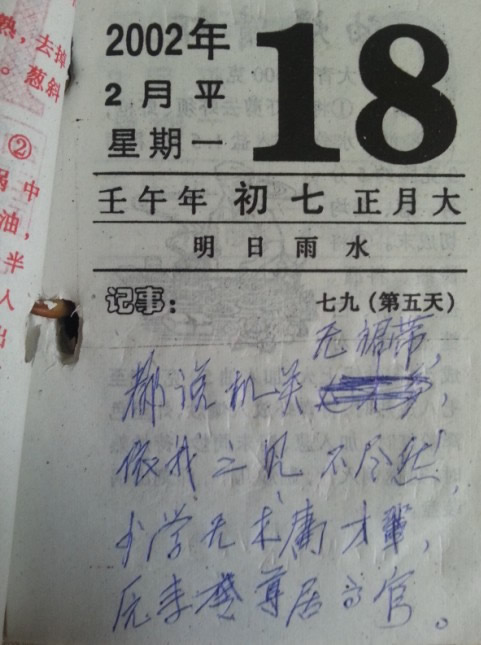 去掉
。葱斜
②
中
油,
半
人
出
2002年
2月平
星期一
18
壬午年 初七 正月大
明日雨水
记事: 七九(第五天)
无裙带,
都说机关
依我之见不尽然,
学无术庸才辈,
居高官。